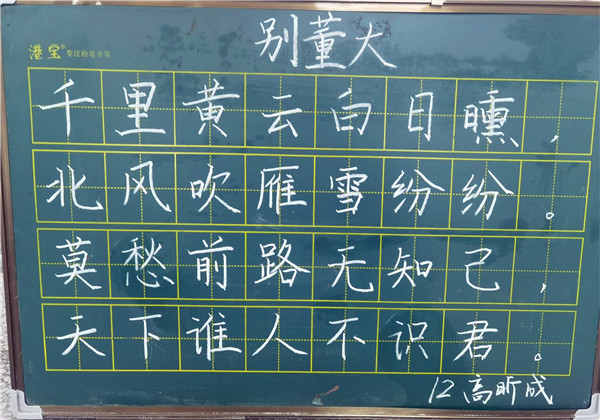 别董大
港宝® 专注粉笔书写
千里黄云白日曛，
北风吹雁雪纷纷。
莫愁前路无知己，
天下谁人不识君。
12高昕成